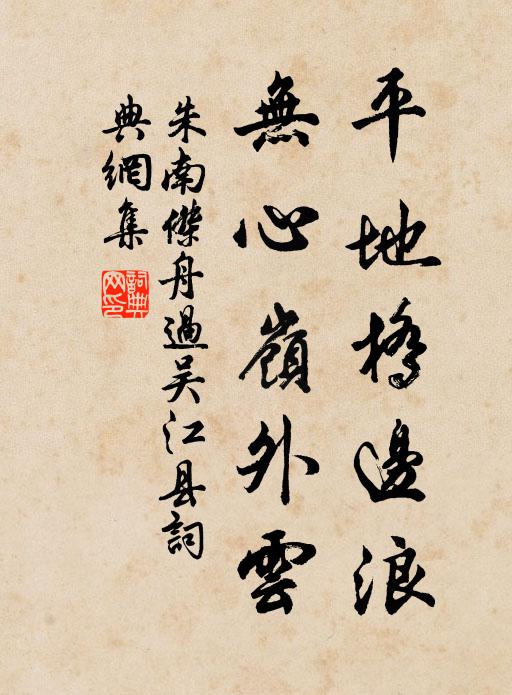 平地橋邊浪
無心嶺外雲
朱南傑舟過吴江县詞
典網集
詞典
网印